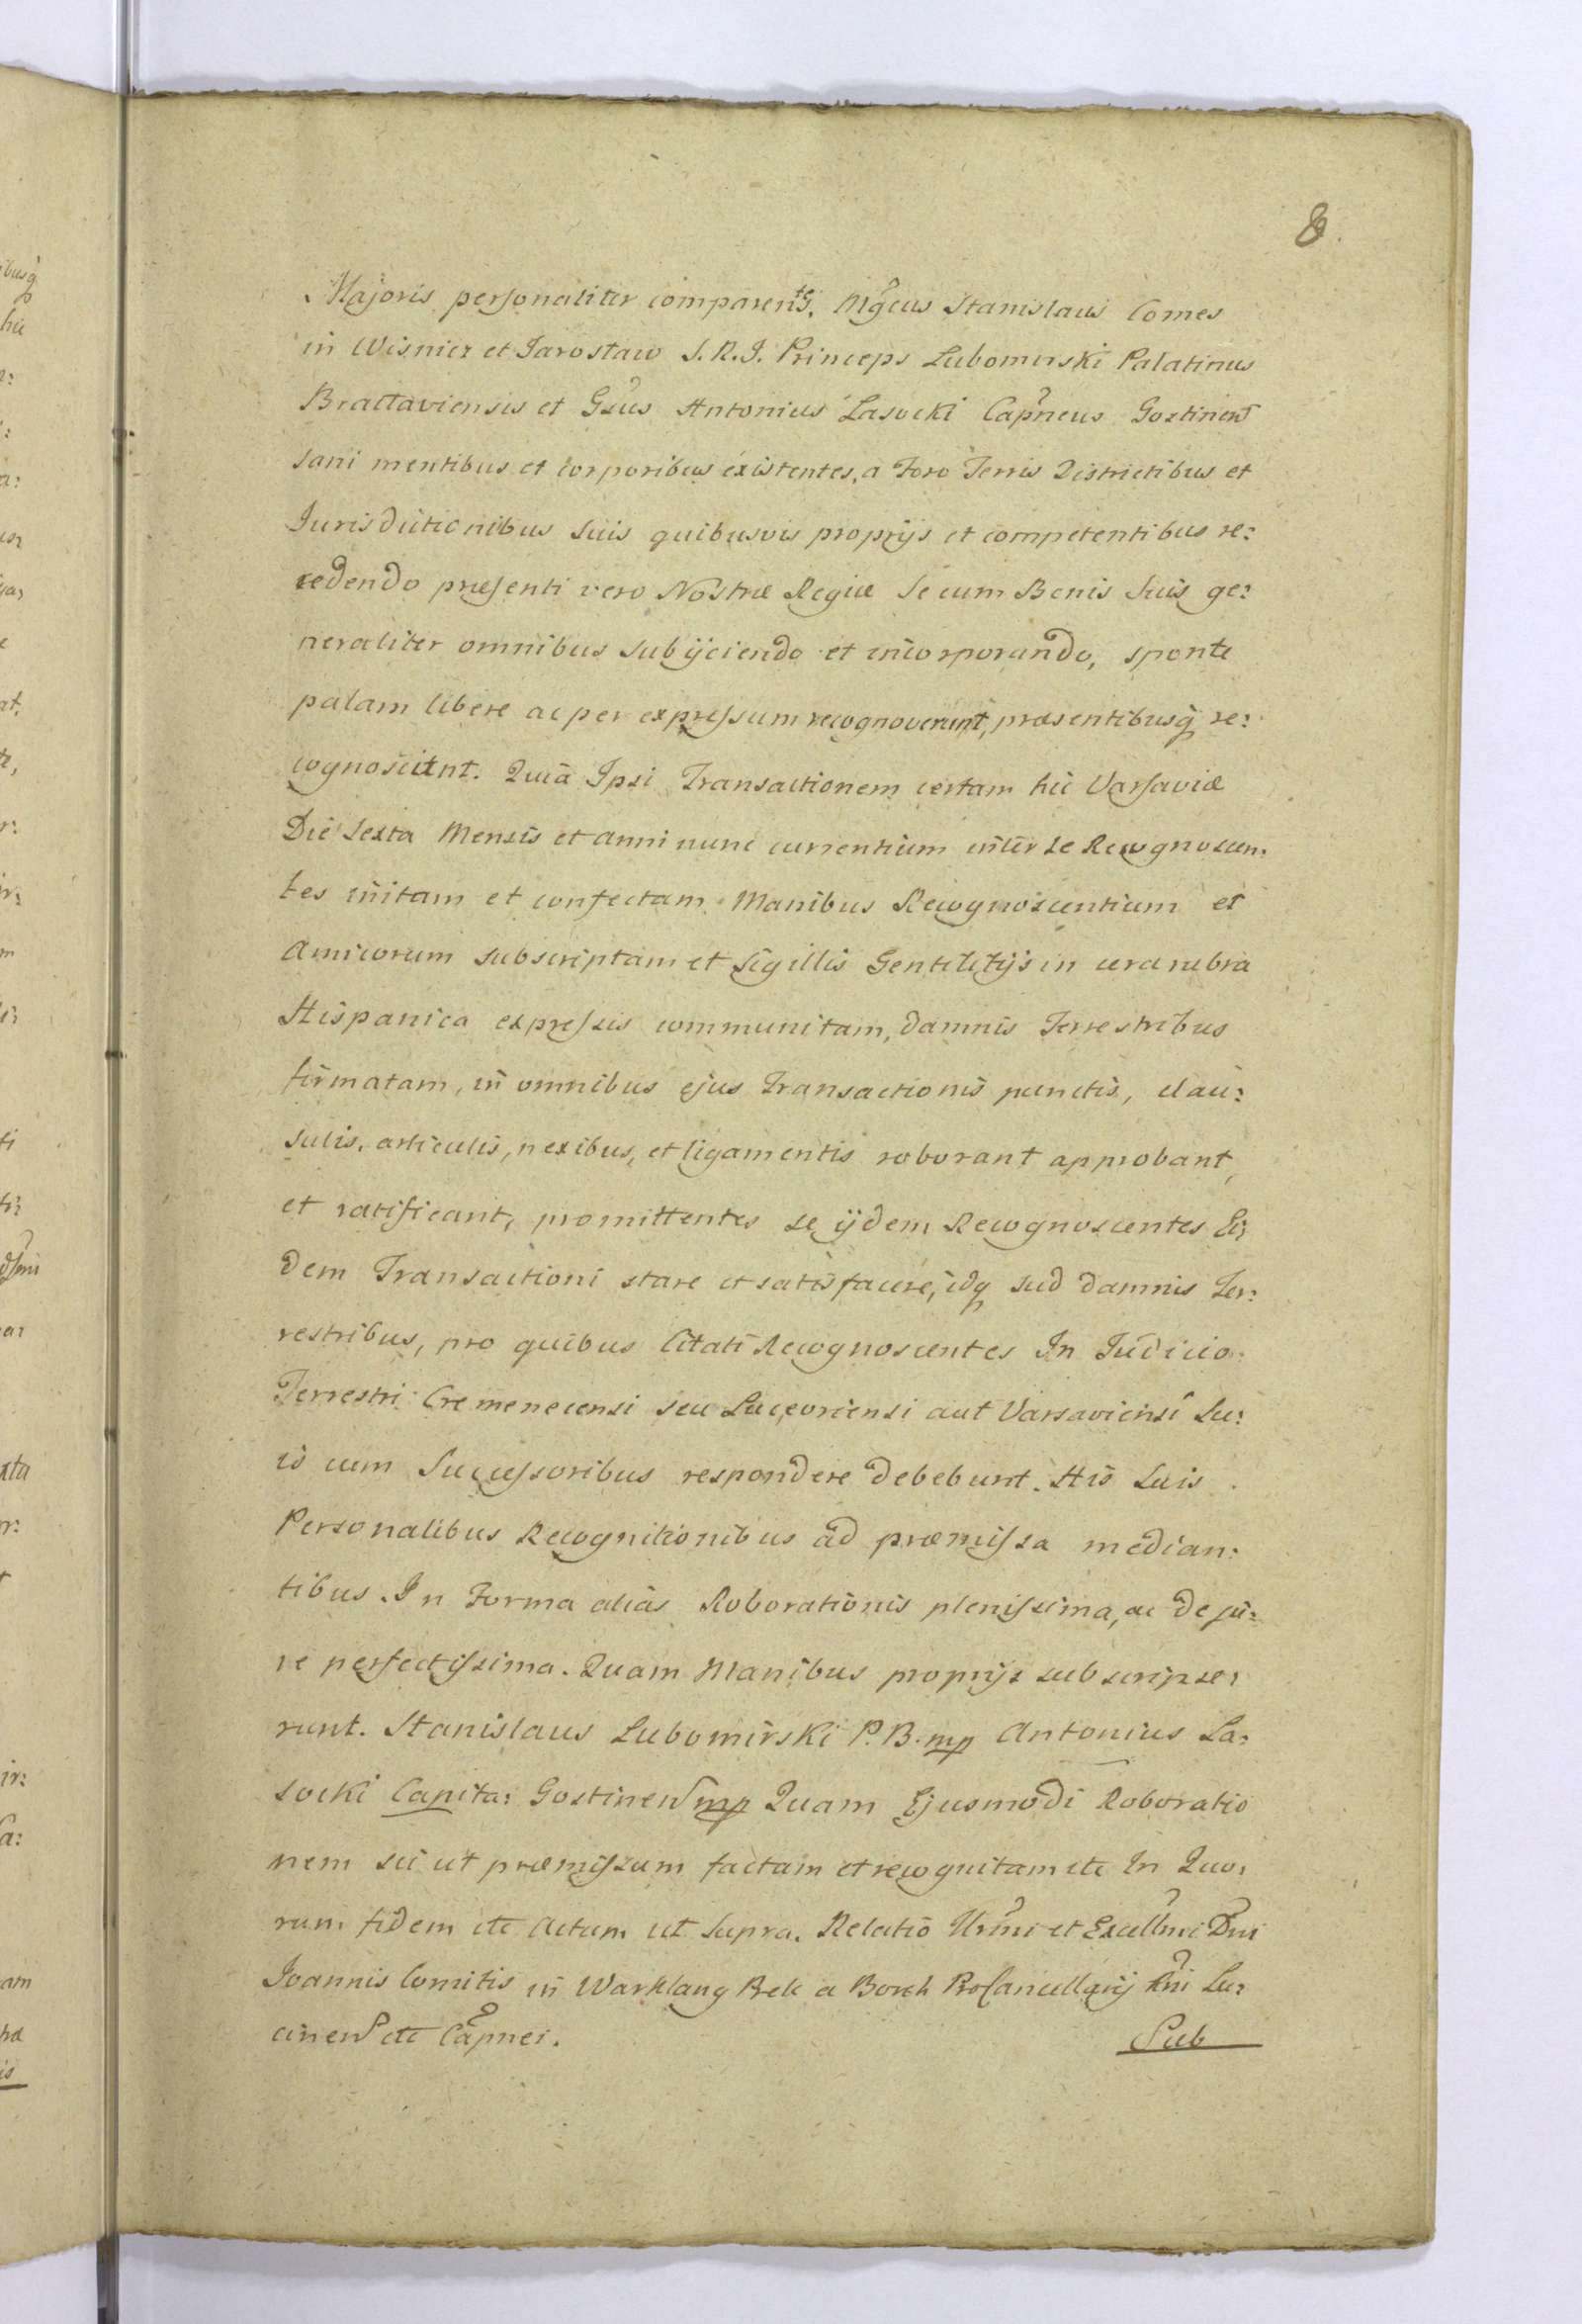 8.
Majoris personaliter comparentes. Mgcus Stanislaus Comes
in Wisnicz et Jarostaw S. R. J. Princeps Lubomirski Palatinus
Brattaviensis et Gsus Antonius Lasocki Capneus Gostinens
sani mentibus et corporibus existentes, a Foro Terris Districtibus et
Jurisdictionibus suis quibusvis proprijs et competentibus re:
cedendo præsenti vero Nostræ Regiæ se cum Bonis suis ge:
neraliter omnibus subijciendo et incorporando, sponte
palam libere ac per expressum recognoverunt, præsentibusq re:
cognoscunt. Quia Ipsi Transactionem certam hic Varsaviæ
Die sexta Mensis et anni nunc currentium inter se Recognoscen:
tes initam et confectam Manibus Recognoscentium et
Amicorum subscriptam et Sigillis Gentilitijs in cera rubra
Hispanica expressis communitam, damnis Terrestribus
firmatam, in omnibus ejus Transactionis punctis, clau:
sulis, articulis, nexibus, et ligamentis roborant approbant,
et ratificant, promittentes se ijdem Recognoscentes Ei:
dem Transactioni stare et satisfacere, idq sud damnis Ter:
restribus, pro quibus Citati Recognoscentes In Judicio
Terrestri Cremenecensi seu Luceoriensi aut Varsaviensi Su:
is cum Successoribus respondere debebunt. His Suis
Personalibus Recognitionibus ad præmissa median:
tibus. In Forma alias Roborationis plenissima, ac de ju:
re perfectissima. Quam Manibus proprijs subscripse:
runt. Stanislaus Lubomirski P. B. mp Antonius La:
socki Capita: Gostinens mp Quam Ejusmodi Roboratio
nem sic ut præmissum factam et recognitam etc In Quo:
rum fidem etc Actum ut Supra. Relatio Urmi et Excellmi Dni
Joannis Comitis in Warklang Prek a Borch ProCancellarij Rni Lu:
cinens etc Capnei.
Sub